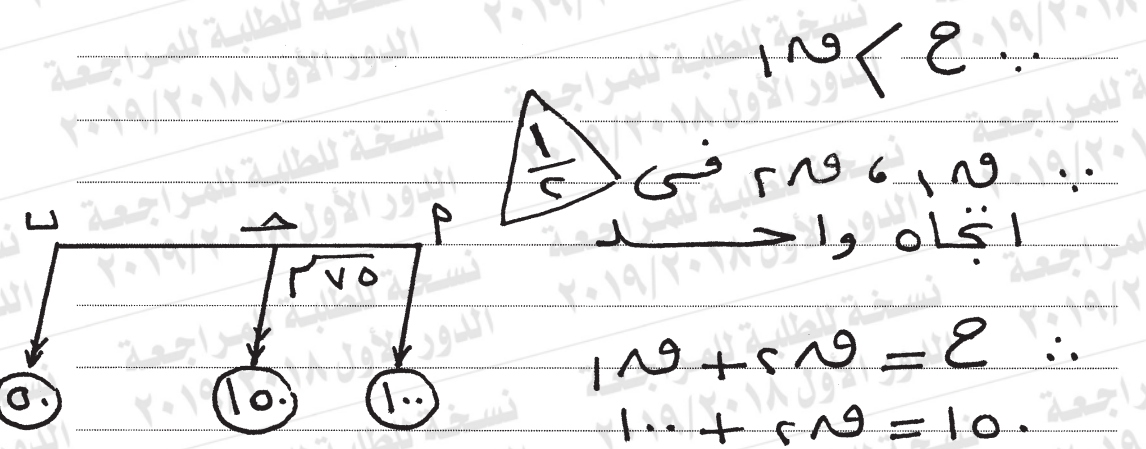 ∵ ح > ق١
∴ ق١ ، ق٢ فى
١/٢
اتجاه واحد
∴ ح = ق٢ + ق١
١٥٠ = ق٢ + ١٠٠
ب ح م
٧٥ م
٥٠ ١٥٠ ١٠٠
نسخة للطلبة للمراجعة
الدور الأول ٢٠١٩/٢٠١٨